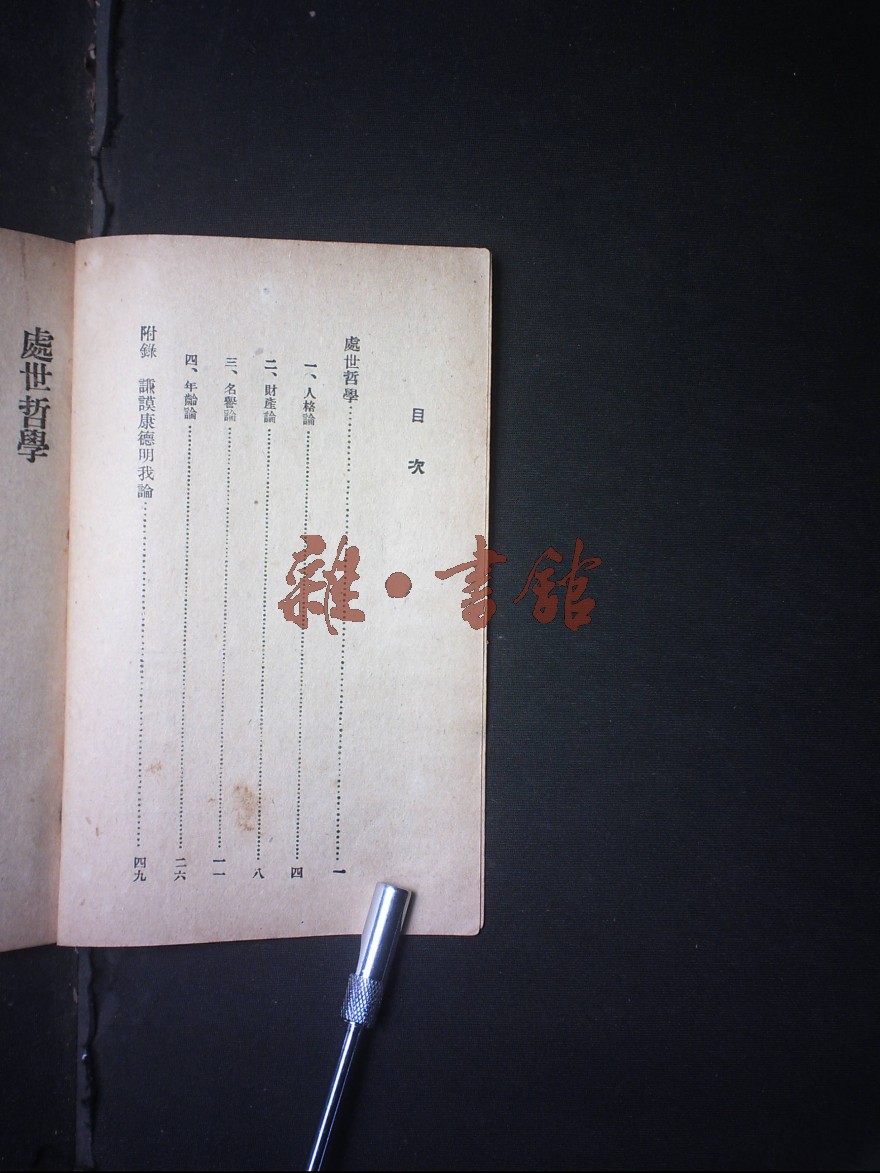 目次
處世哲學……一
一、人格論……四
二、財產論……八
三、名譽論……一一
四、年齡論……二六
附錄　謙謨康德明我論……四九
處世哲學
雜·書館